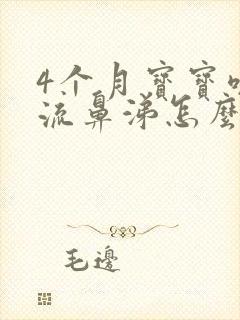 4个月寶寶
流鼻涕怎麼
毛邊